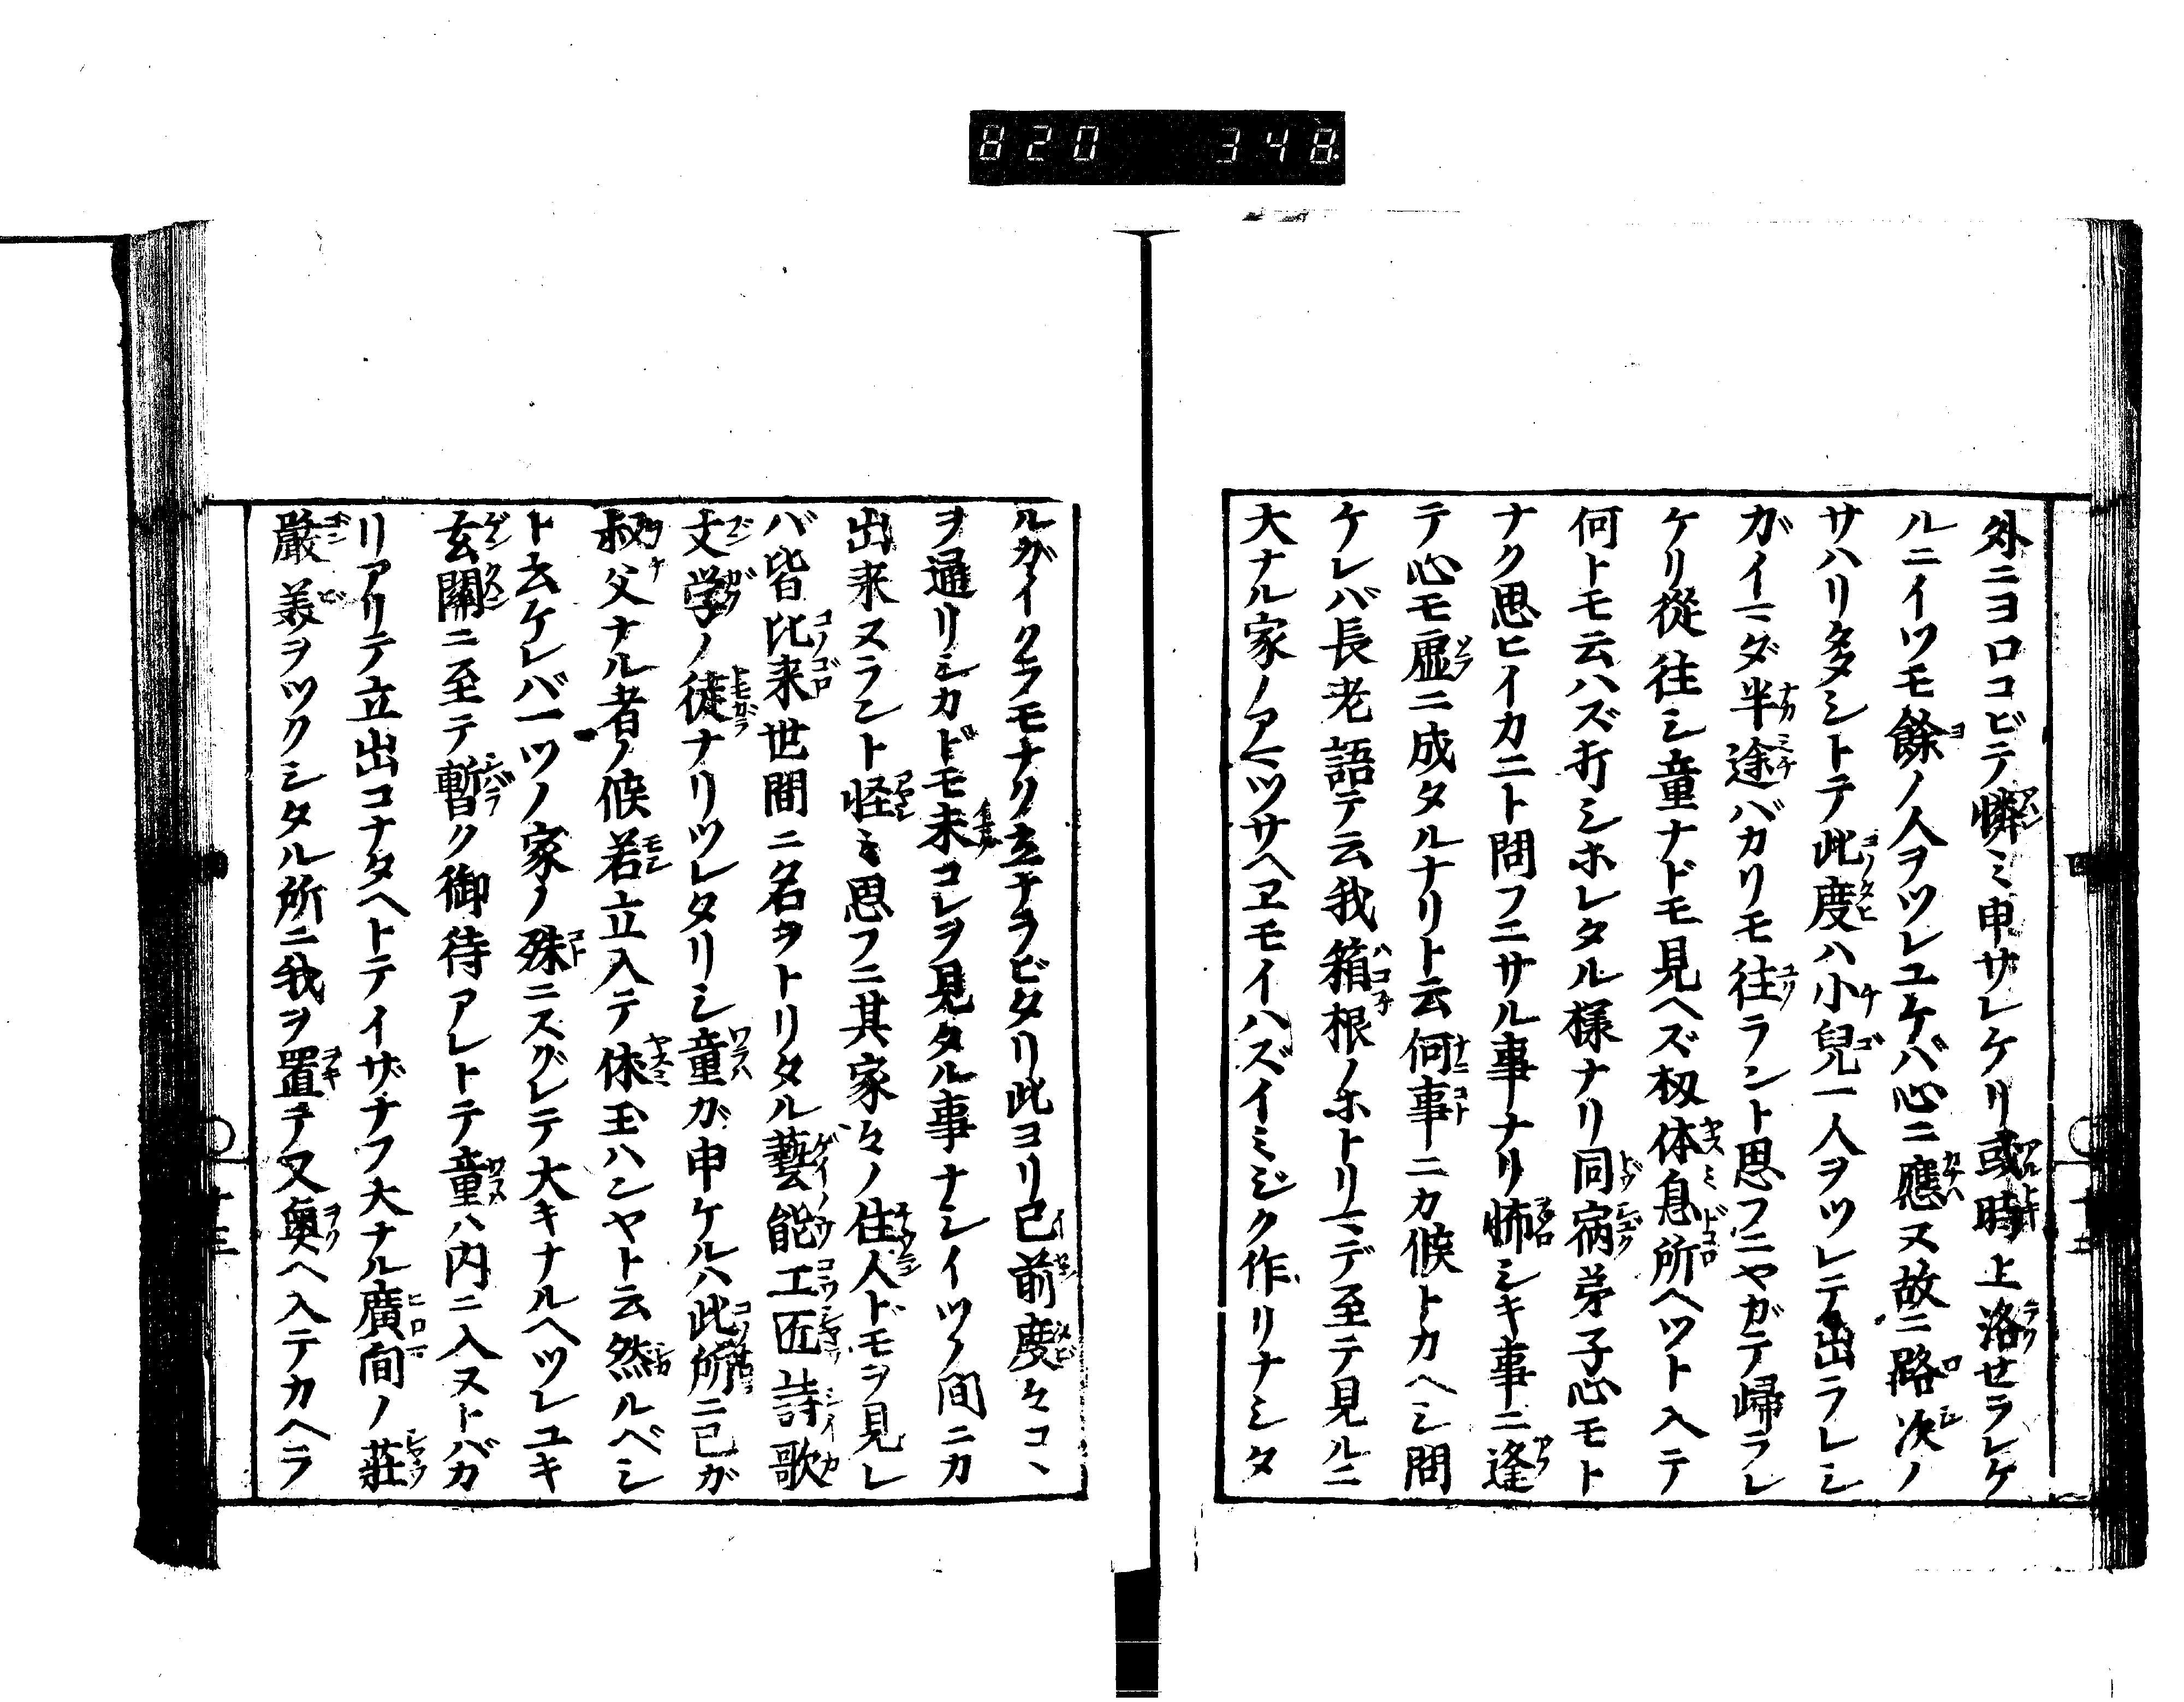 820 348
外ニヨロコビテ憐ミ申サレケリ或時上洛セラレケ
ルニイツモ餘ノ人ヲツレユケバ心ニ應ヌ故ニ路次ノ
サハリ多シトテ此度ハ小兒一人ヲツレテ出ラレシ
ガイマダ半途バカリモ往ラント思フニヤガテ歸ラレ
ケリ從往シ童ナドモ見ヘズ扨休息所ヘツト入テ
何トモ云ハズ打シホレタル様ナリ同宿弟子心モト
ナク思ヒイカニト問フニサル事ナリ怖シキ事ニ逢
テ心モ虚ニ成タルナリト云何事ニカ候トカヘシ問
ケレバ長老語テ云我箱根ノホトリマデ至テ見ルニ
大ナル家ノアマツサヘヱモイハズイミジク作リナシタ
ルガイクラモナリ立ナラビタリ此ヨリ已前度々コヽ
ヲ通リシカドモ未コレヲ見タル事ナシイツノ間ニカ
出来スラント怪ミ思フニ其家々ノ住人ドモヲ見レ
バ皆比来世間ニ名ヲトリタル藝能工匠詩歌
文学ノ徒ナリツレタリシ童ガ申ケルハ此所ニ己ガ
叔父ナル者ノ候若立入テ休玉ハンヤト云然ルベシ
ト云ケレバ一ツノ家ノ殊ニスグレテ大キナルヘツレユキ
玄關ニ至テ暫ク御待アレトテ童ハ内ニ入ヌトバカ
リアリテ立出コナタヘトテイザナフ大ナル廣間ノ莊
嚴美ヲツクシタル所ニ我ヲ置テ又奥ヘ入テカヘラ